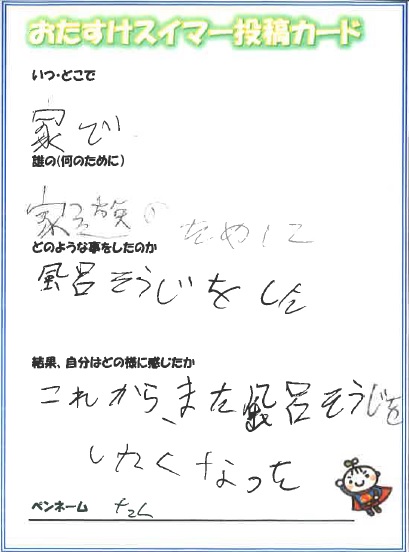 おたすけスイマー投稿カード
いつ・どこで
家で
誰の(何のために)
家族の ために
どのような事をしたのか
風呂そうじをした
結果、自分はどの様に感じたか
これから、また風呂そうじを
したくなった
ペンネーム